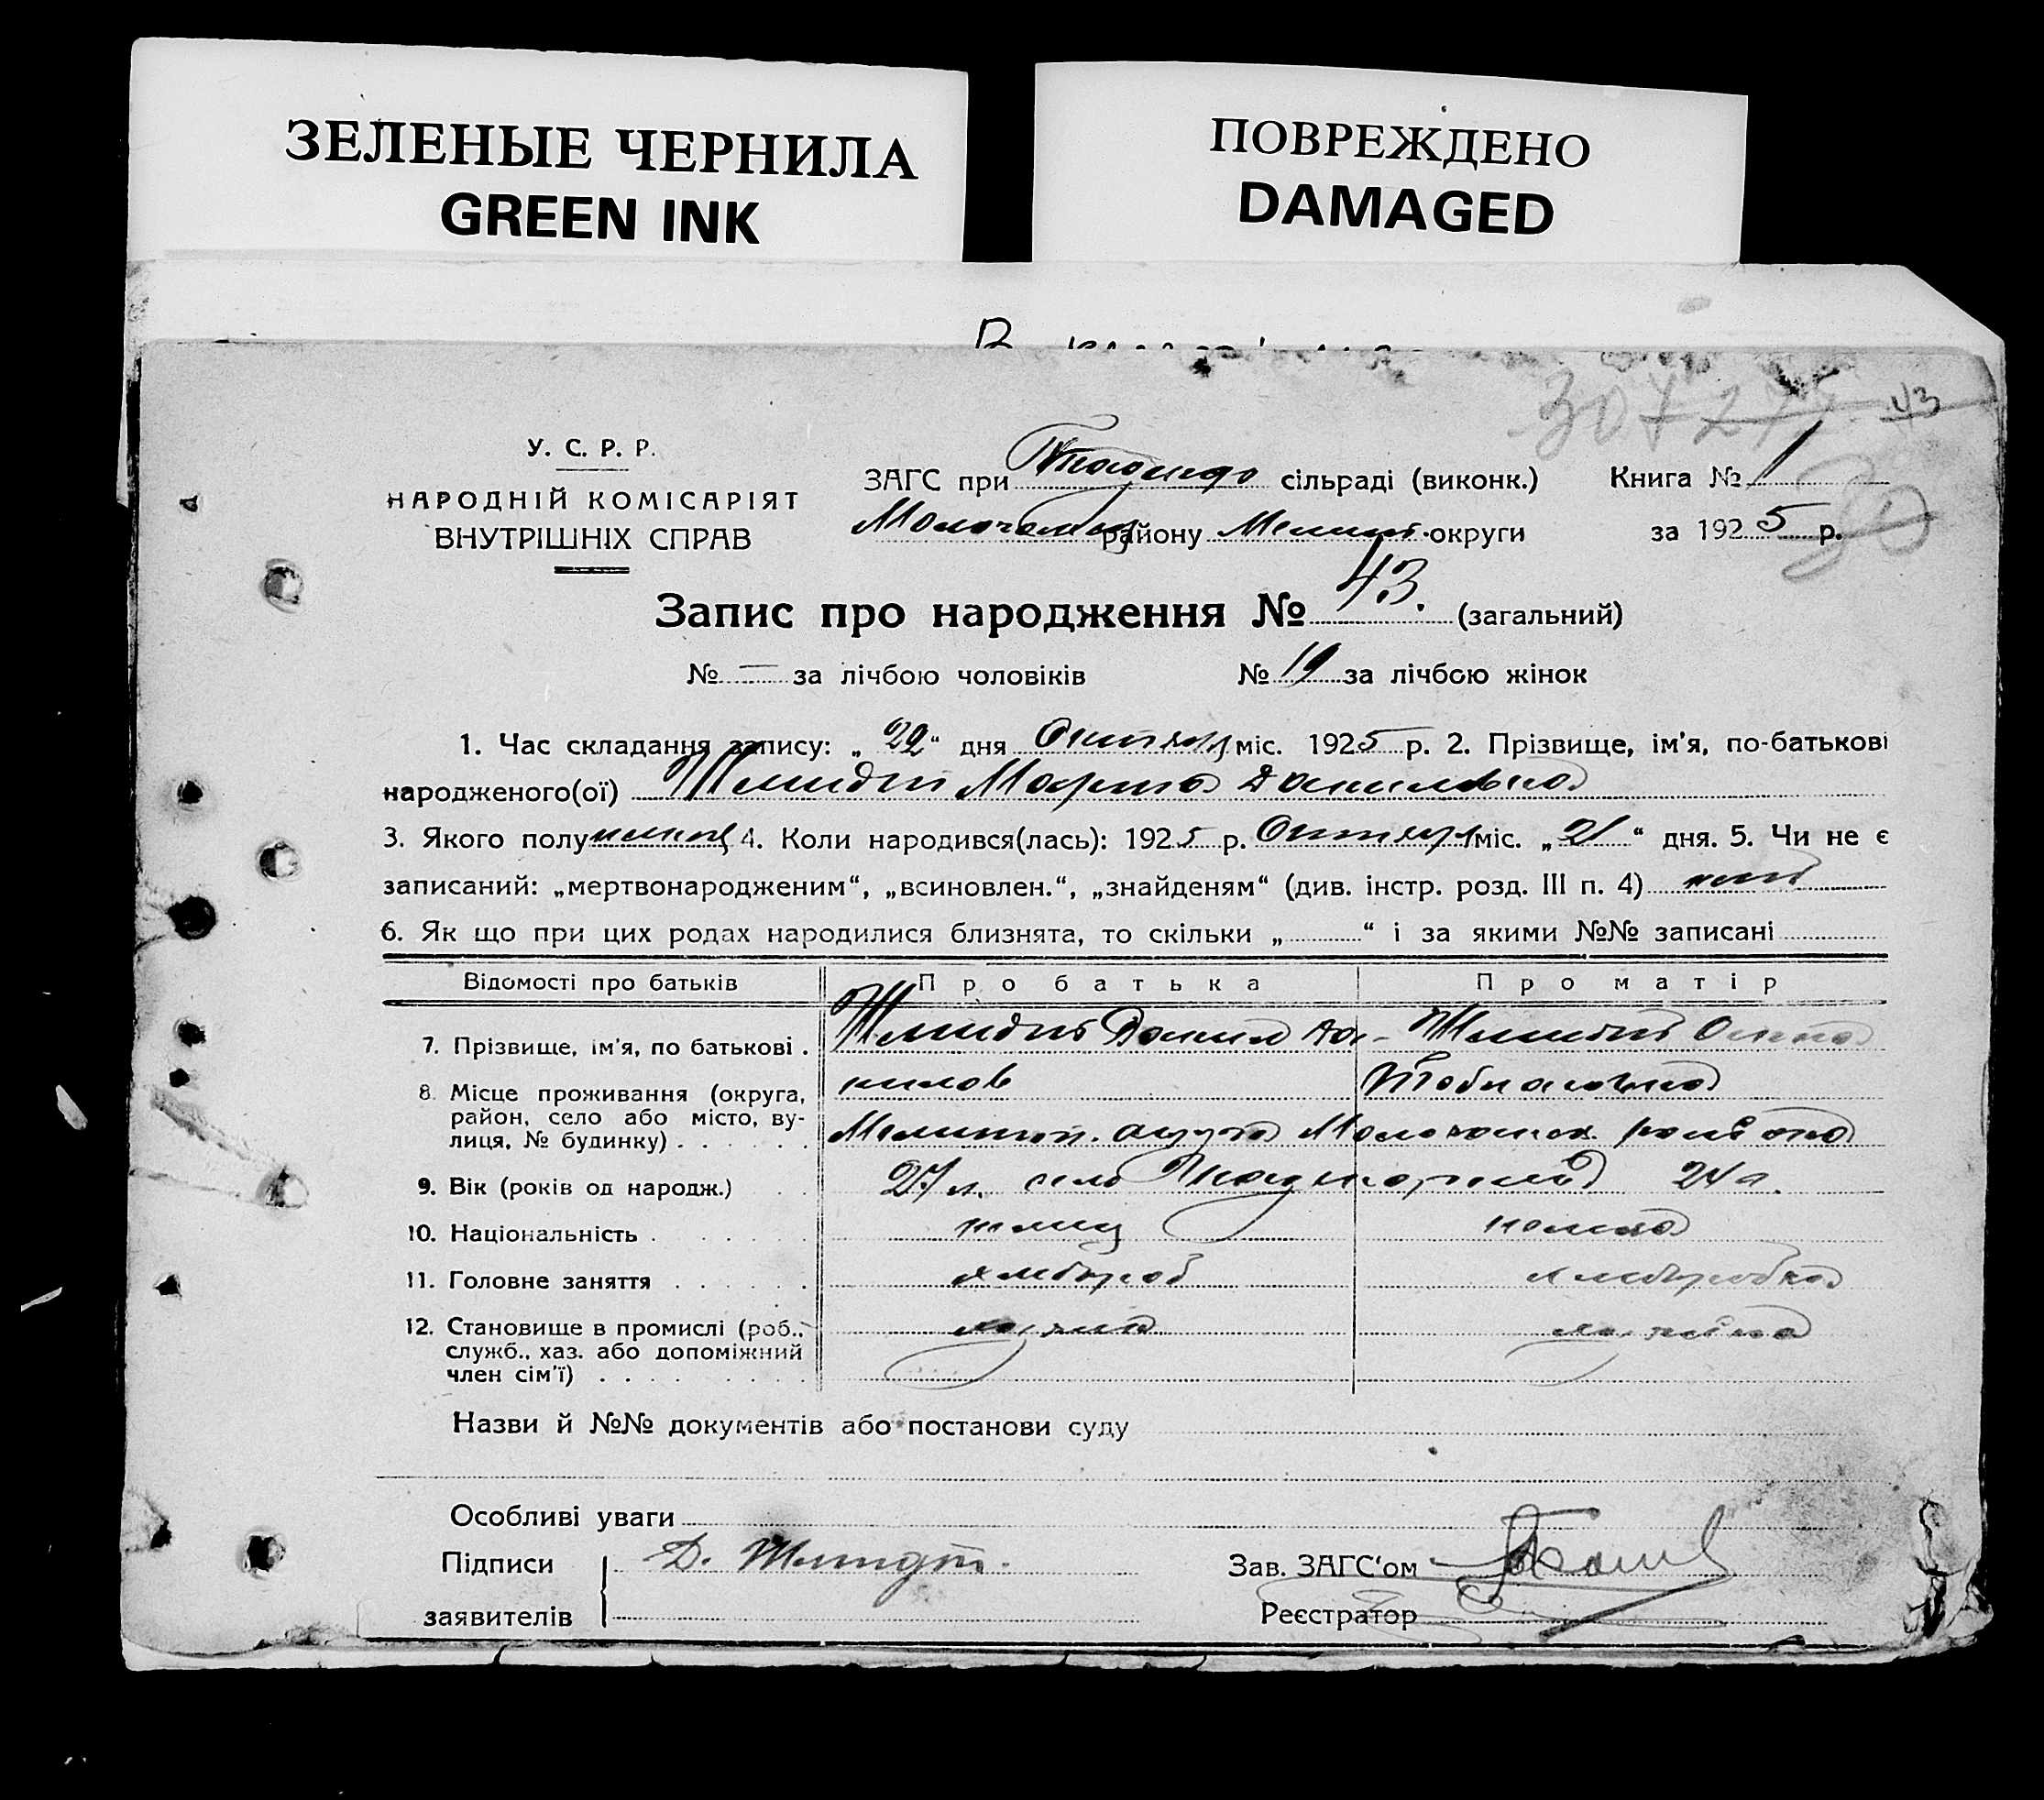 ЗЕЛЕНЫЕ ЧЕРНИЛА
GREEN INK
ПОВРЕЖДЕНО
DAMAGED
307 43
У. С. Р. Р.
НАРОДНІЙ КОМІСАРІЯТ
ВНУТРІШНІХ СПРАВ
ЗАГС при сільраді (виконк.) Книга № 1
району Мелит. округи за 1925 р.
Запис про народження № 43. (загальний)
№ — за лічбою чоловіків № 19 за лічбою жінок
1. Час складання запису: „ 22 “ дня Октября міс. 1925 р. 2. Прізвище, ім'я, по-батькові
народженого(ої) Шмидт Марта Даниловна
3. Якого полу 4. Коли народився(лась): 1925 р. Октября міс. „ 21 “ дня. 5. Чи не є
записаний: „мертвонародженим“, „всиновлен.“, „знайденям“ (див. інстр. розд. III п. 4) нет
6. Як що при цих родах народилися близнята, то скільки „ “ і за якими №№ записані
Відомості про батьків Про батька Про матір
7. Прізвище, ім'я, по батькові . Шмидт Данил Да- Шмидт
нилов
8. Місце проживання (округа,
район, село або місто, ву-
лиця, № будинку) Мелитоп. округа Молочанск. района
9. Вік (років од народж.) 27 л. село 24 л.
10. Національність немец немка
11. Головне заняття хлебороб хлеборобка
12. Становище в промислі (роб.,
служб., хаз. або допоміжний
член сім'ї)
Назви й №№ документів або постанови суду
Особливі уваги
Підписи Д. Шмидт. Зав. ЗАГС'ом
заявителів Реєстратор